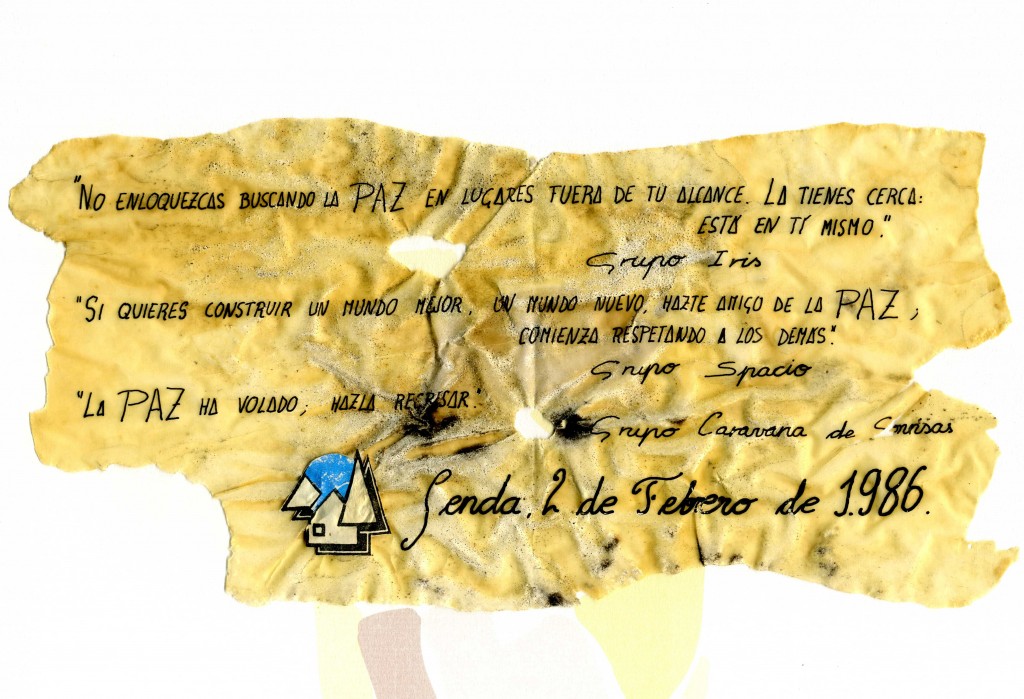 "NO ENLOQUEZCAS BUSCANDO LA PAZ EN LUGARES FUERA DE TU ALCANCE. LA TIENES CERCA:
ESTÁ EN TÍ MISMO."
Grupo Iris
"SI QUIERES CONSTRUIR UN MUNDO MEJOR, UN MUNDO NUEVO, HAZTE AMIGO DE LA PAZ;
COMIENZA RESPETANDO A LOS DEMÁS".
Grupo Spacio.
"LA PAZ HA VOLADO; HAZLA REGRESAR."
Grupo Caravana de Sonrisas
Senda, 2 de Febrero de 1.986.